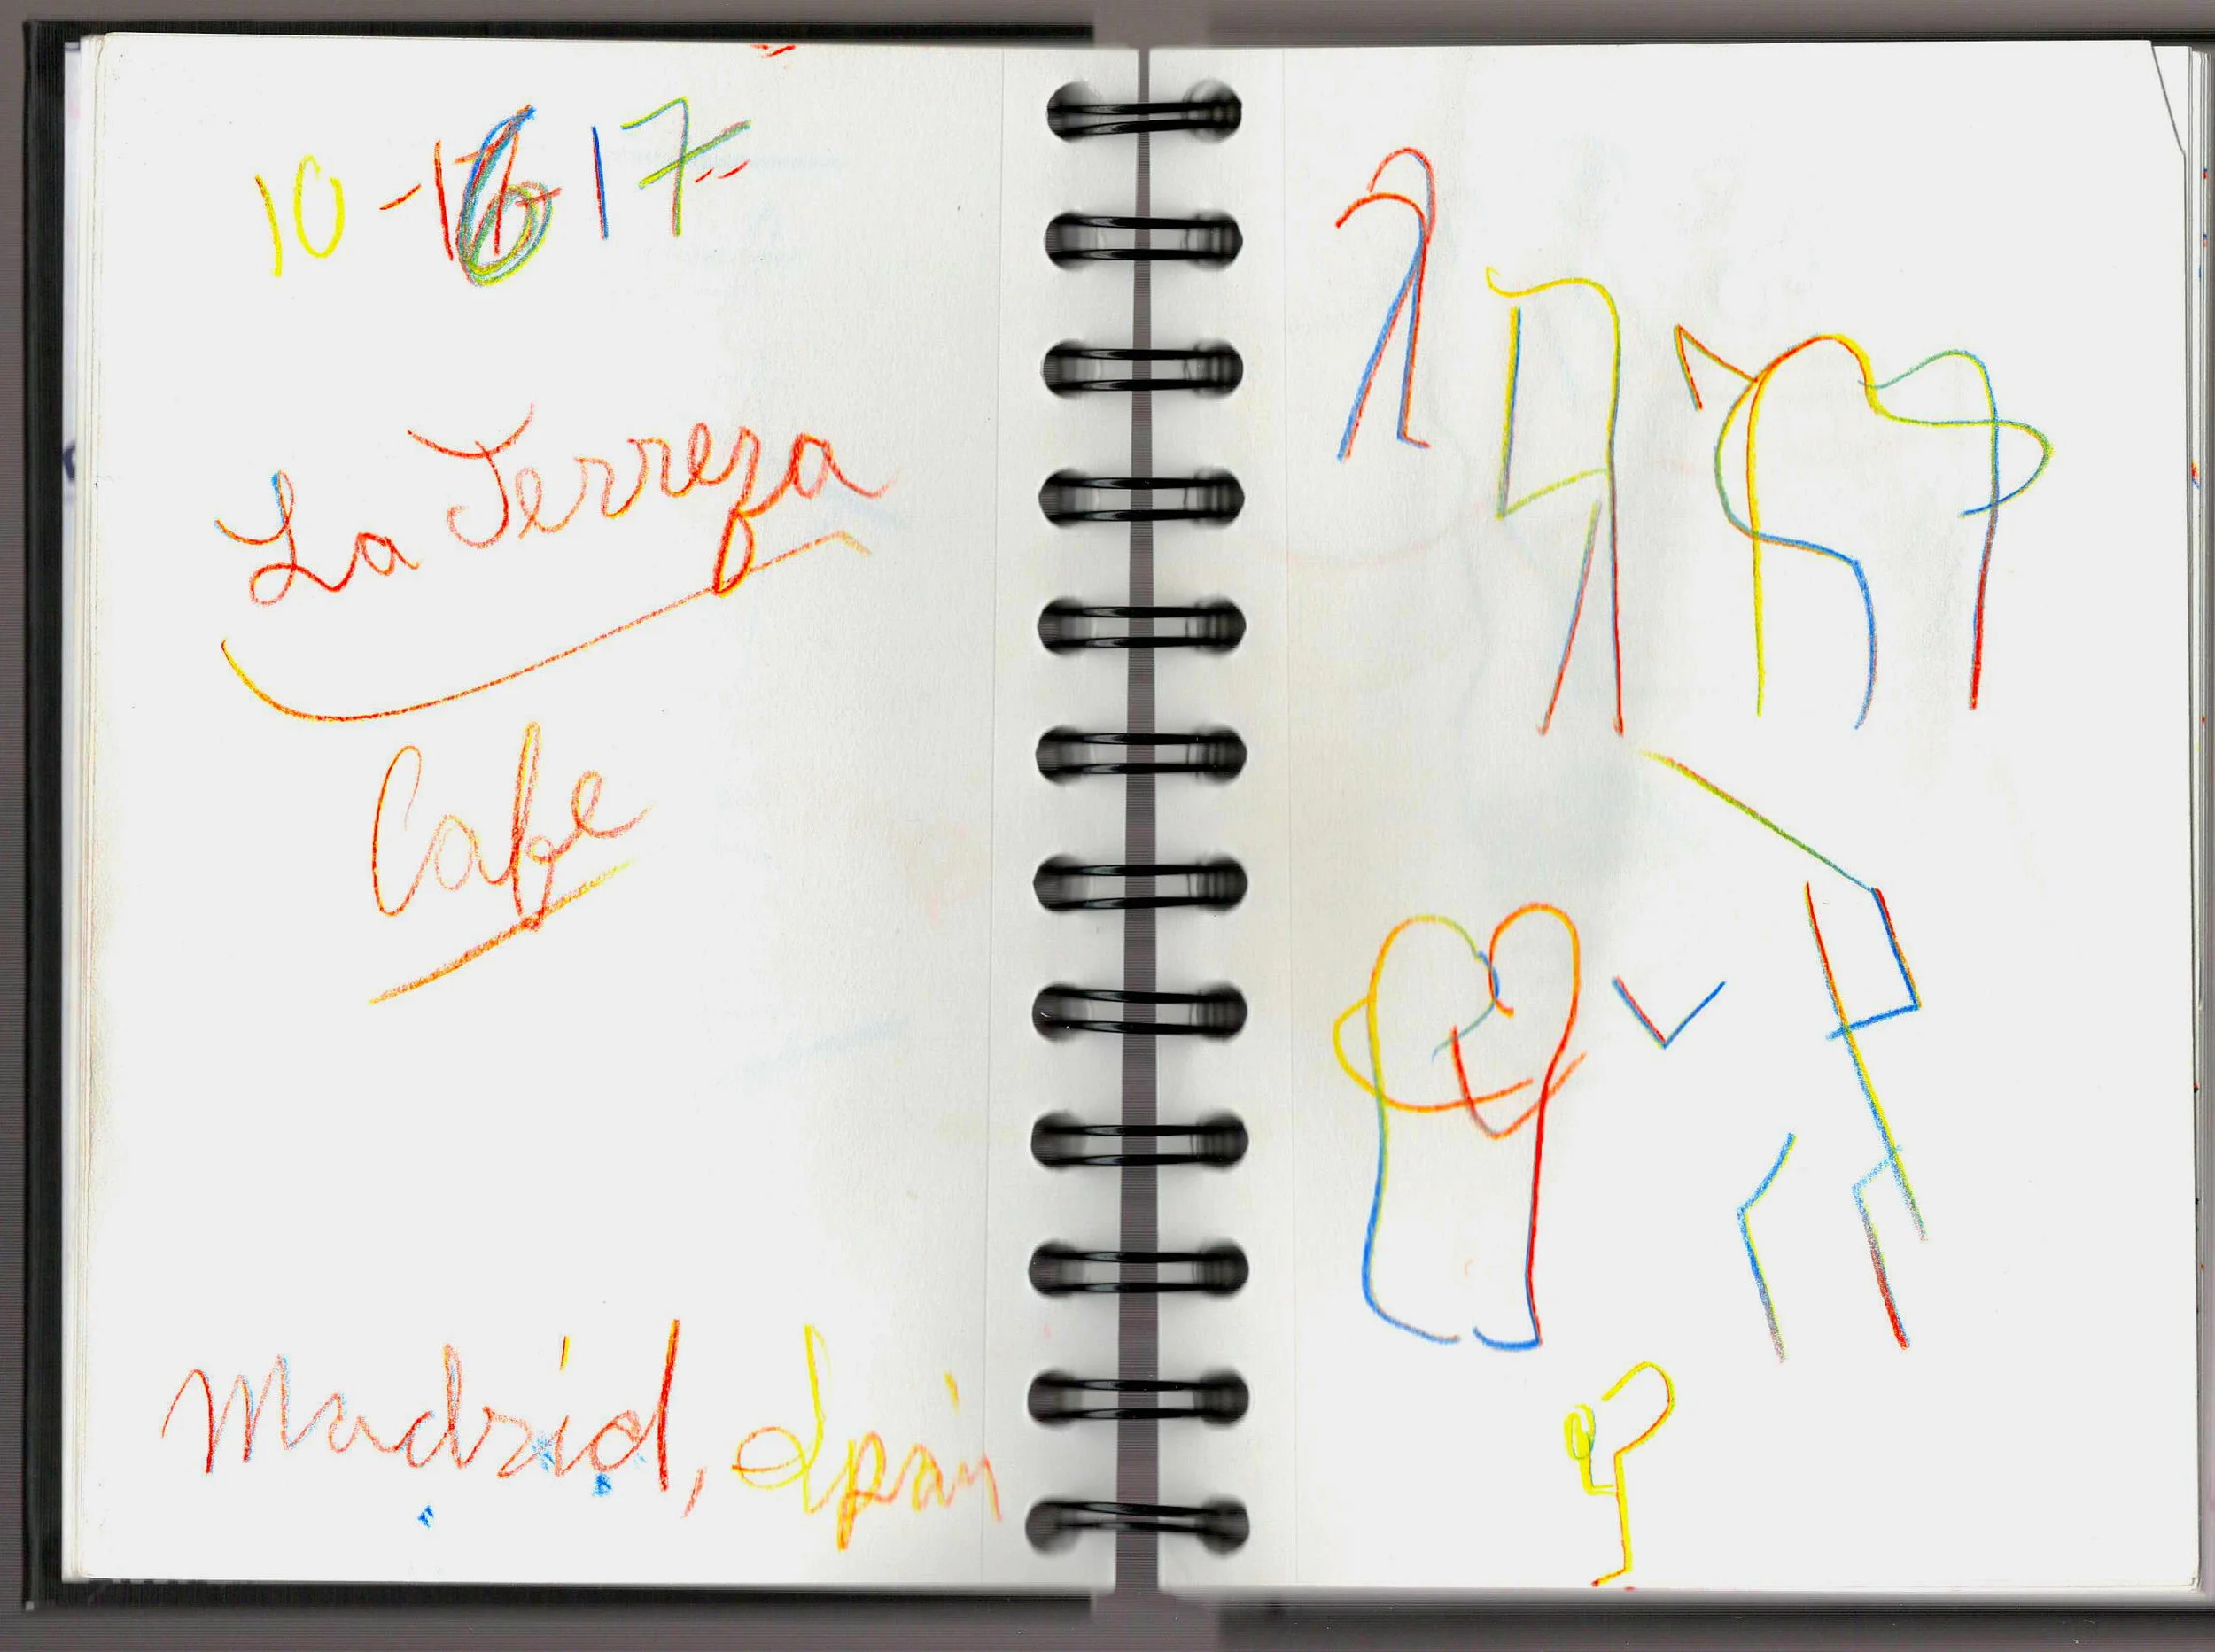 10-16 17
La Terreza
Cafe
Madrid, Spain